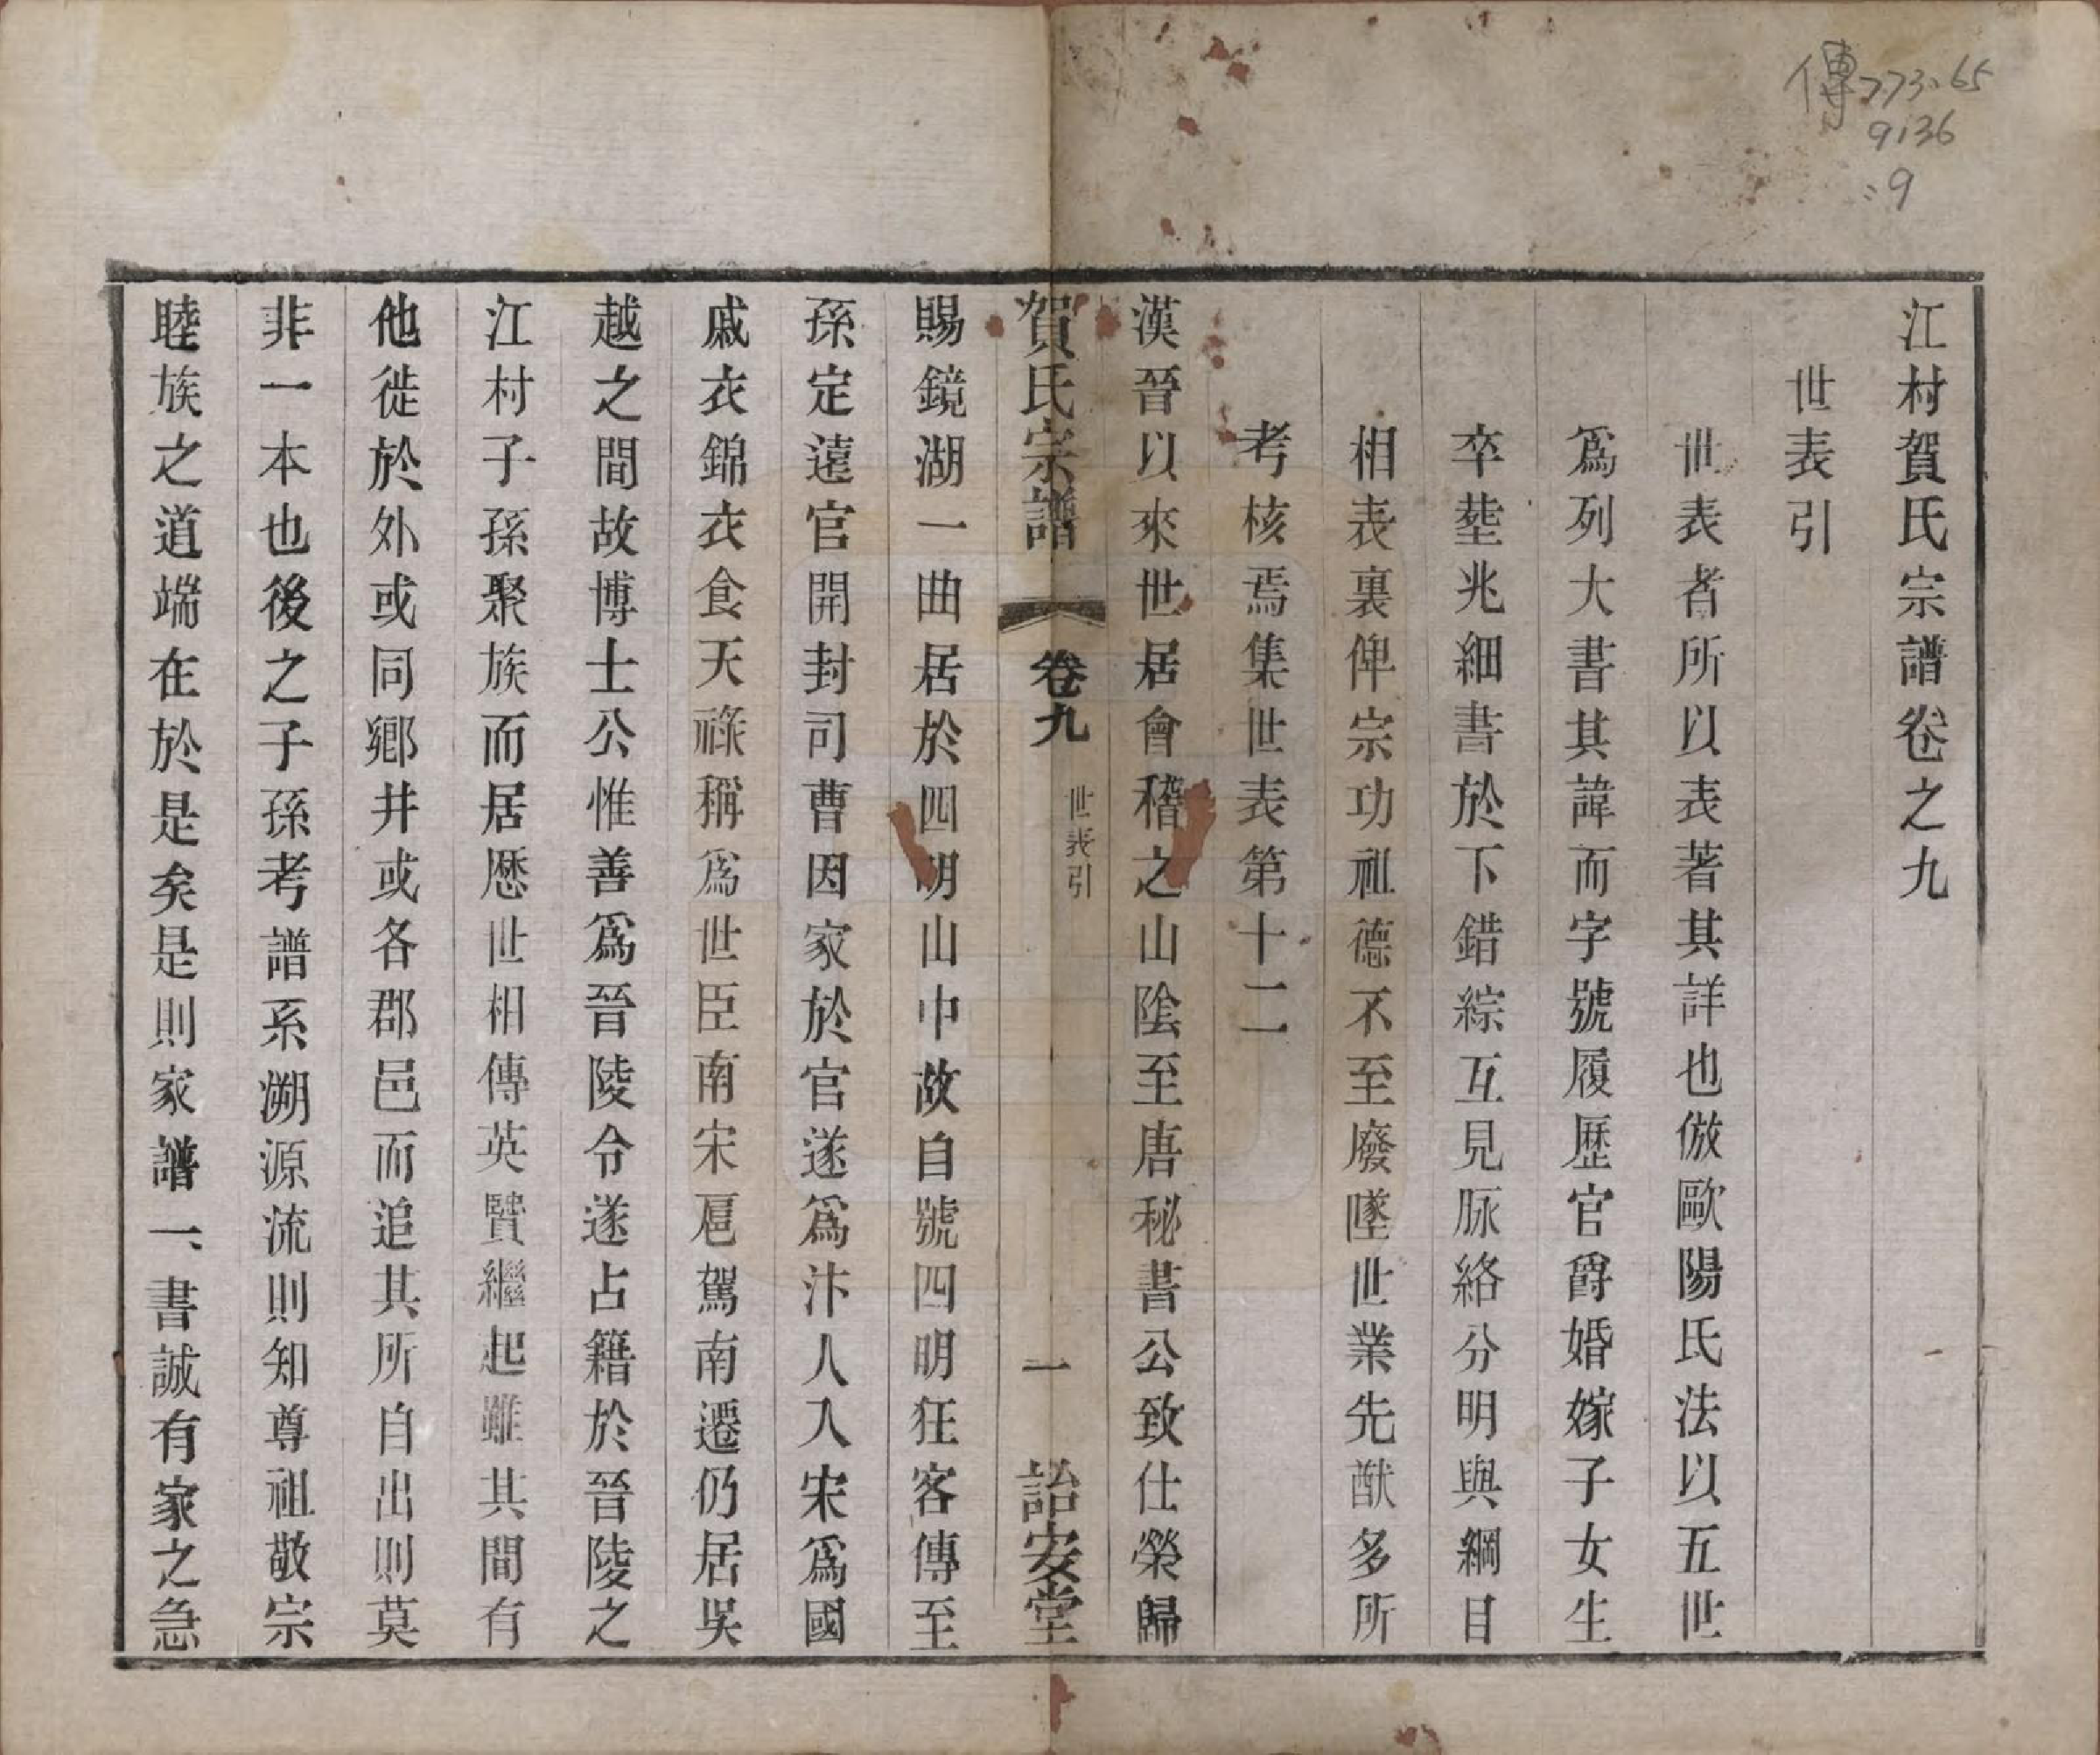 傳773.65
9136
:9
江村賀氏宗譜卷之九
世表引
世表者所以表著其詳也倣歐陽氏法以五世
爲列大書其諱而字號履歷官爵婚嫁子女生
卒塟兆細書於下錯綜互見脉絡分明與綱目
相表裏俾宗功祖德不至廢墜世業先猷多所
考核焉集世表第十二
漢晉以來世居會稽之山陰至唐秘書公致仕榮歸
賀氏宗譜 卷九 世表引 一 詒安堂
賜鏡湖一曲居於四明山中故自號四明狂客傳至
孫定遠官開封司曹因家於官遂爲汴人入宋爲國
戚衣錦衣食天祿稱爲世臣南宋扈駕南遷仍居吳
越之間故博士公惟善爲晉陵令遂占籍於晉陵之
江村子孫聚族而居歷世相傳英賢繼起雖其間有
他徙於外或同鄉井或各郡邑而追其所自出則莫
非一本也後之子孫考譜系溯源流則知尊祖敬宗
睦族之道端在於是矣是則家譜一書誠有家之急